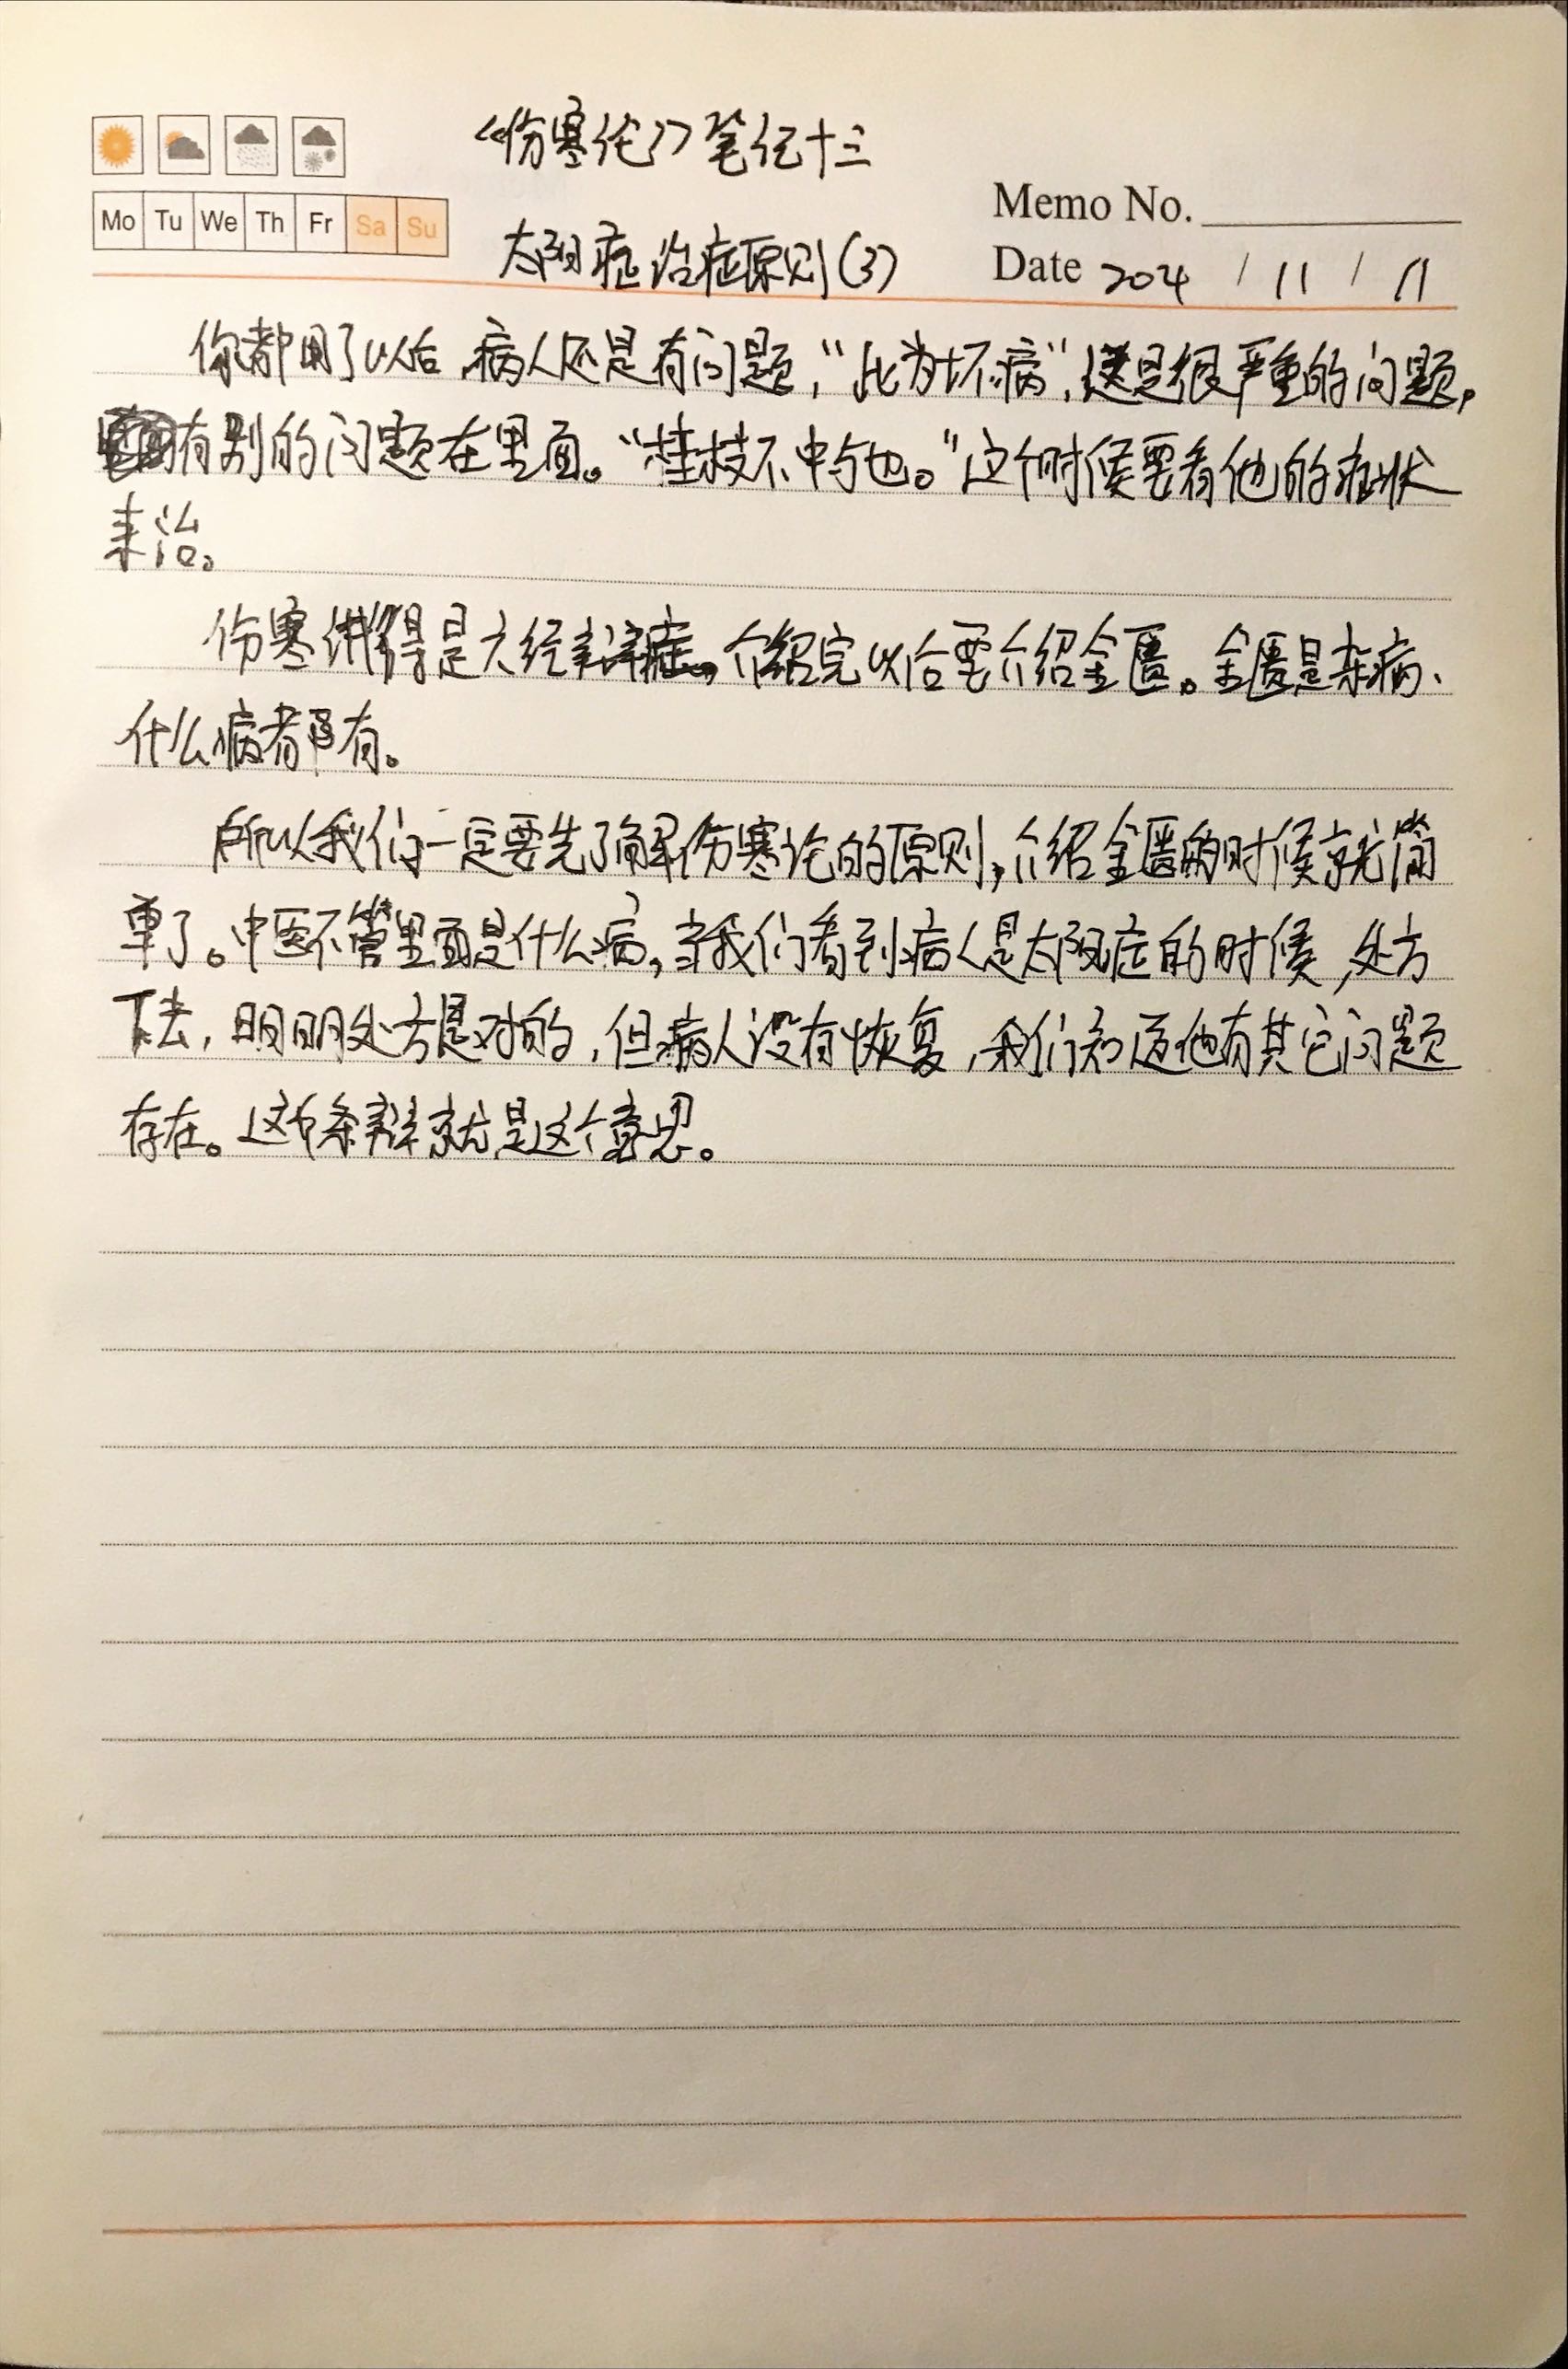 《伤寒论》笔记十三
Mo Tu We Th Fr Sa Su
Memo No.
太阳症治症原则(3)
Date 204 / 11 / 11
你都用了以后,病人还是有问题,“此为坏病”,这是很严重的问题,
有别的问题在里面。“桂枝不中与也。”这个时候要看他的症状
来治。
伤寒讲得是六经辩症。介绍完以后要介绍金匮。金匮是杂病、
什么病都有。
所以我们一定要先了解伤寒论的原则,介绍金匮的时候就简
单了。中医不管里面是什么病,当我们看到病人是太阳症的时候,处方
下去,明明处方是对的,但病人没有恢复,我们知道他有其它问题
存在。这个条辩就是这个意思。